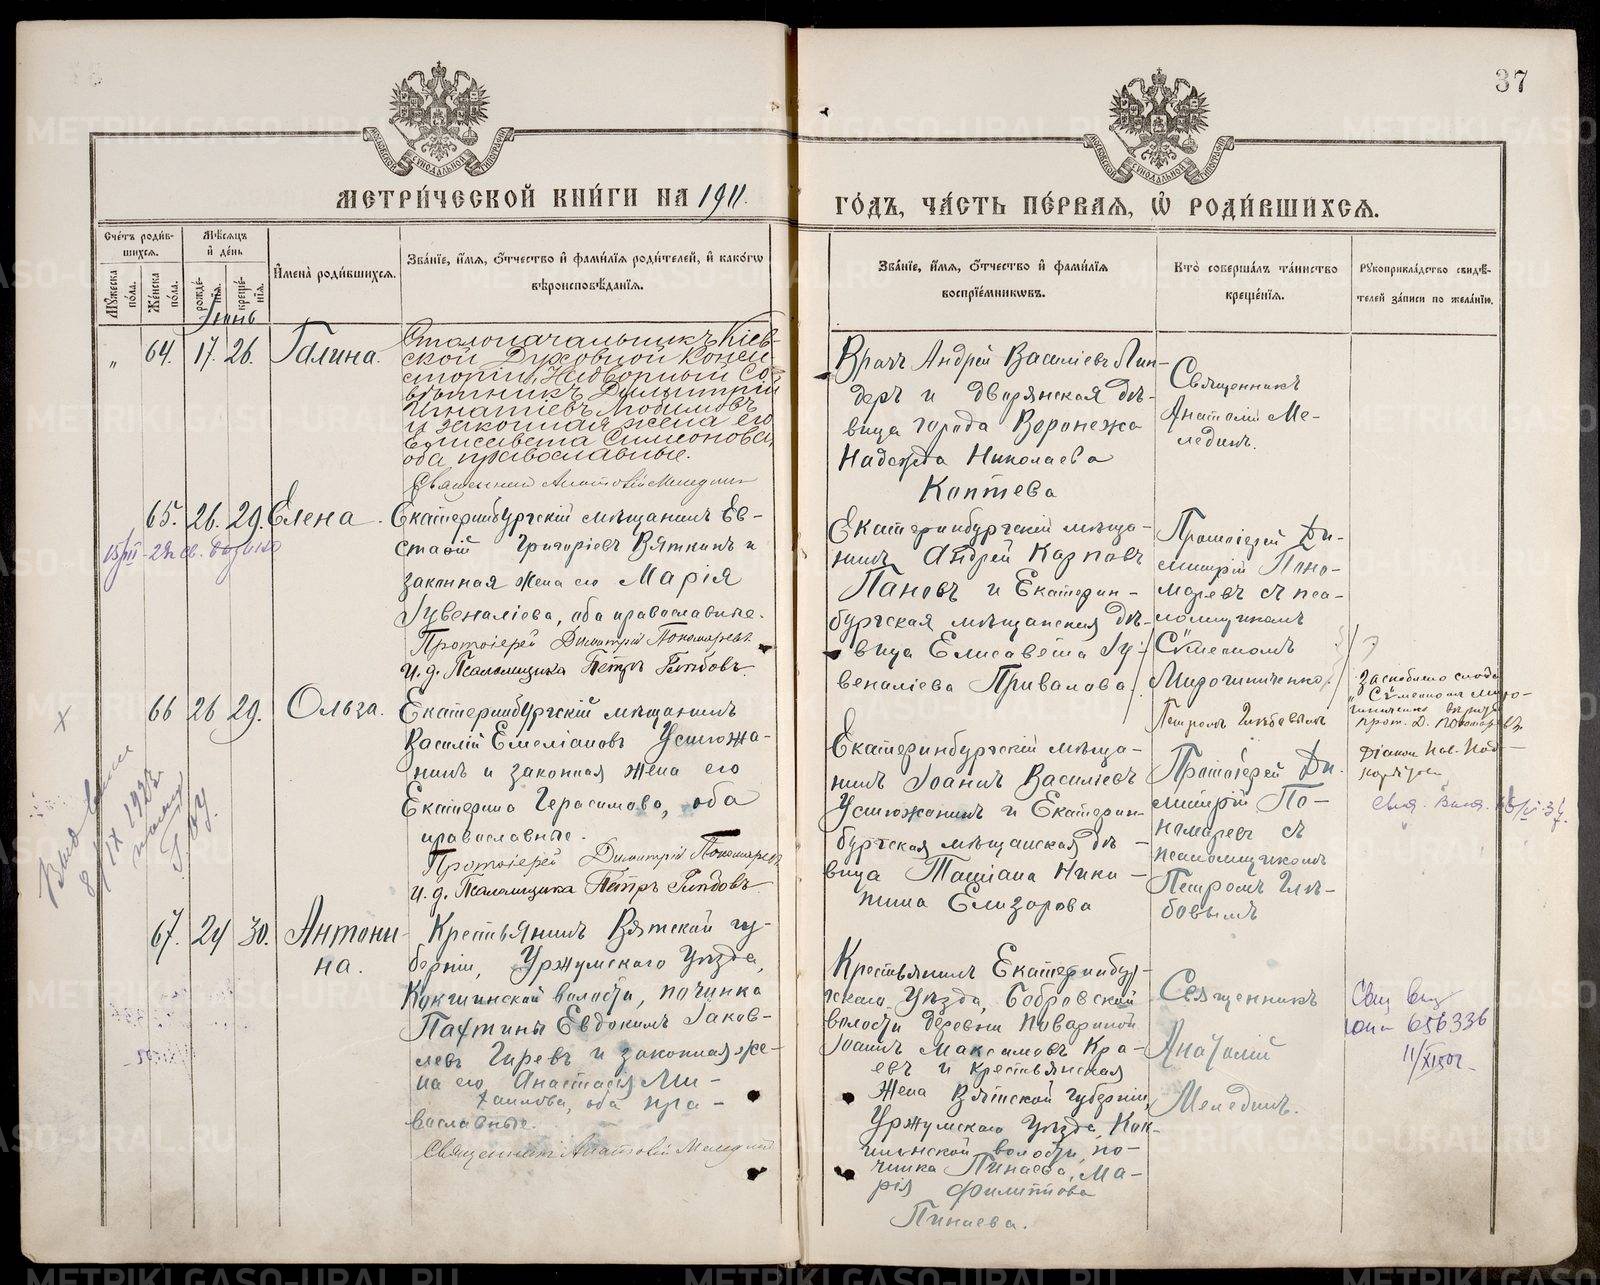 37
МЕТРИЧЕСКОЙ КНИГИ НА 1911.
ГОДЪ, ЧАСТЬ ПЕРВАЯ, Ѡ РОДИВШИХСЯ.
Счетъ родив-
шихся.
Мѣсяцъ
и день
Мужеска
пола.
Женска
пола.
рожде-
нія.
креще-
нія.
Имена родившихся.
Званіе, имя, отчество и фамилія родителей, и какогѡ
вѣроисповѣданія.
Званіе, имя, отчество и фамилія
воспріемникѡвъ.
Кто совершалъ таинство
крещенія.
Рукоприкладство свидѣ-
телей записи по желанію.
Іюнь
„ 64. 17. 26. Галина.
Столоначальникъ Кіев-
ской Духовной Конси-
сторіи, Надворный Со-
вѣтникъ Димитрій
Игнатіевъ Любимовъ
и законная жена его
Елисавета Симеонова,
оба православные.
Священникъ Анатолій Мелединъ
Врачъ Андрей Василіевъ Лин-
деръ и дворянская дѣ-
вица города Воронежа
Надежда Николаева
Коптева
Священникъ
Анатолій Ме-
лединъ.
65. 26. 29. Елена.
Екатеринбургскій мѣщанинъ Ев-
стафій Григоріевъ Вяткинъ и
законная жена его Марія
Іувеналіева, оба православные.
Протоіерей Димитрій Пономаревъ
И. д. Псаломщика Петръ Глѣбовъ.
Екатеринбургскій мѣща-
нинъ Андрей Карповъ
Пановъ и Екатерин-
бургская мѣщанская дѣ-
вица Елисавета Іу-
веналіева Привалова.
Протоіерей Ди-
митрій Поно-
маревъ съ пса-
ломщикомъ
Сѵмеономъ
Мирошниченко
Петромъ Глѣбовымъ
66 26 29. Ольга.
Екатеринбургскій мѣщанинъ
Василій Емеліановъ Устюжа-
нинъ и законная жена его
Екатерина Герасимова, оба
православные.
Протоіерей Димитрій Пономаревъ
И. д. Псаломщика Петръ Глѣбовъ.
Екатеринбургскій мѣща-
нинъ Іоаннъ Василіевъ
Устюжанинъ и Екатерин-
бургская мѣщанская дѣ-
вица Татіана Ники-
тина Елизарова
Протоіерей Ди-
митрій По-
номаревъ съ
псаломщикомъ
Петромъ Глѣ-
бовымъ
67. 24 30. Антони-
на.
Крестьянинъ Вятской гу-
берніи, Уржумскаго Уѣзда,
Кокшинской волости, починка
Пахтины Евдокимъ Іаков-
левъ Гиревъ и законная же-
на его, Анастасія Ми-
хаилова, оба пра-
вославные.
Священникъ Анатолій Меледин
Крестьянинъ Екатеринбур-
скаго Уѣзда, Бобровской
волости деревни Поварнной
Іоаннъ Максимовъ Кра-
евъ и крестьянская
жена Вятской губерніи,
Уржумскаго Уѣзда, Кок-
шинской волости, по-
чинка Пинаева, Ма-
рія Филиппова
Пинаева.
Священникъ
Анатолій
Меледин.
656336